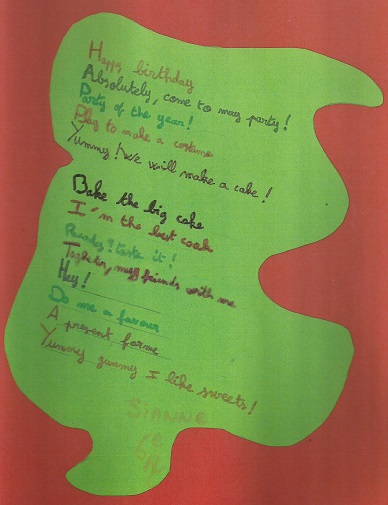 Happy birthday
Absolutely, come to may party!
Party of the year!
Play to make a costume
Yummy! We will make a cake!
Bake the big cake
I'm the best cook
Ready? taste it!
Together, my friends with me
Hey!
Do me a favour
A present for me
Yummy yummy I like sweets!